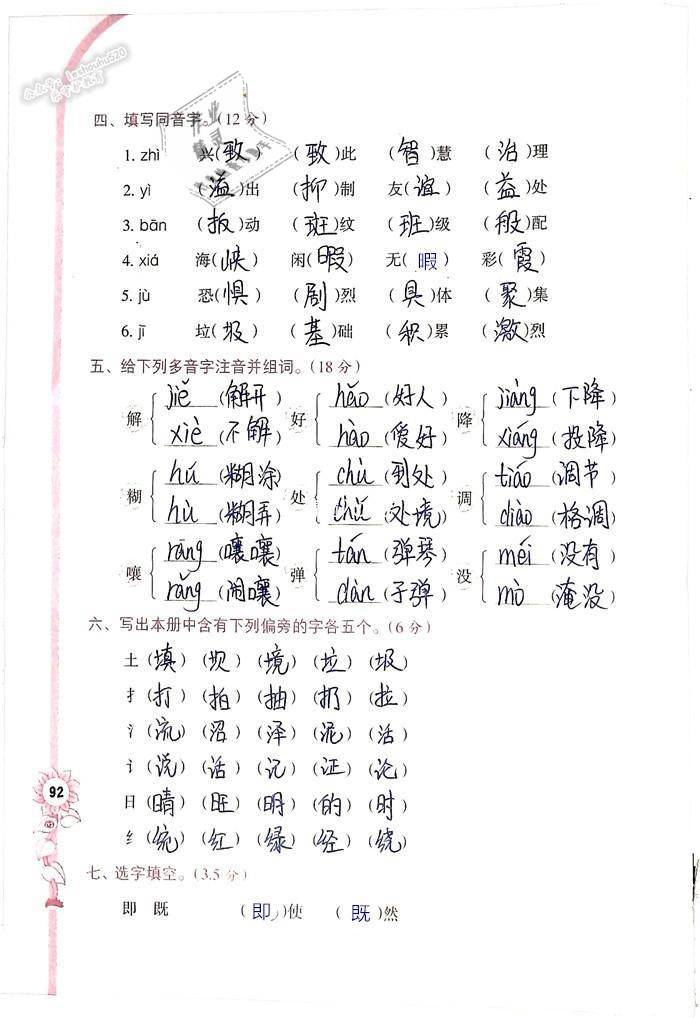 四、填写同音字。(12分)
1. zhì 兴(致) (致)此 (智)慧 (治)理
2. yì (溢)出 (抑)制 友(谊) (益)处
3. bān (扳)动 (斑)纹 (班)级 (般)配
4. xiá 海(峡) 闲(暇) 无(暇) 彩(霞)
5. jù 恐(惧) (剧)烈 (具)体 (聚)集
6. jī 垃(圾) (基)础 (积)累 (激)烈
五、给下列多音字注音并组词。(18分)
jiě (解开) hǎo (好人) jiàng (下降)
解 好 降
xiè (不解) hào (爱好) xiáng (投降)
hú (糊涂) chù (到处) tiáo (调节)
糊 处 调
hù (糊弄) chǔ (处境) diào (格调)
rāng (嚷嚷) tán (弹琴) méi (没有)
嚷 弹 没
rǎng (闹嚷) dàn (子弹) mò (淹没)
六、写出本册中含有下列偏旁的字各五个。(6分)
土 (填) (坝) (境) (垃) (圾)
扌 (打) (拍) (抽) (扔) (拉)
氵 (流) (沼) (泽) (泥) (活)
讠 (说) (话) (记) (证) (论)
日 (晴) (旺) (明) (的) (时)
纟 (绕) (红) (绿) (经) (绕)
92
七、选字填空。(3.5分)
即 既 (即)使 (既)然